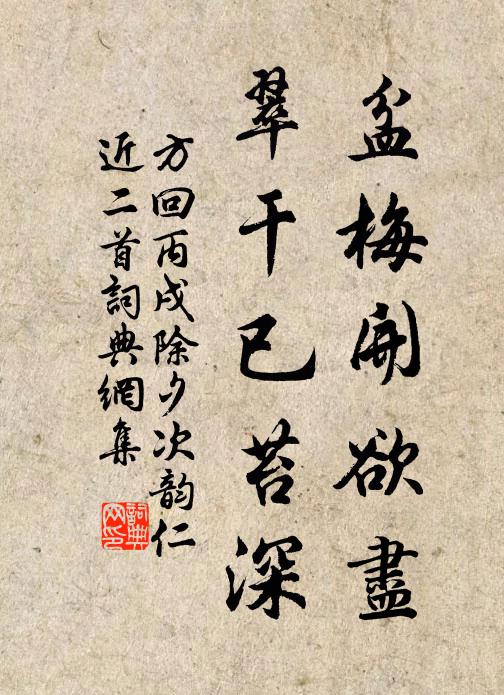 盆梅開欲盡
翠干已苔深
方回丙戌除夕次韵仁
近二首詞典網集
詞典
网印